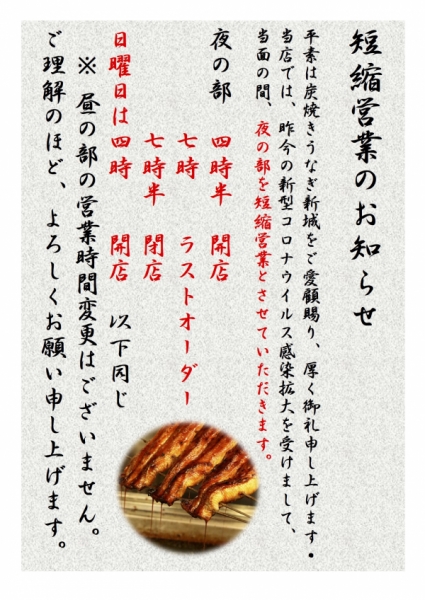 短縮営業のお知らせ
平素は炭焼きうなぎ新城をご愛顧賜り、厚く御礼申し上げます・
当店では、昨今の新型コロナウイルス感染拡大を受けまして、
当面の間、夜の部を短縮営業とさせていただきます。
夜の部 四時半 開店
七時 ラストオーダー
七時半 閉店
日曜日は四時 開店 以下同じ
※ 昼の部の営業時間変更はございません。
ご理解のほど、よろしくお願い申し上げます。